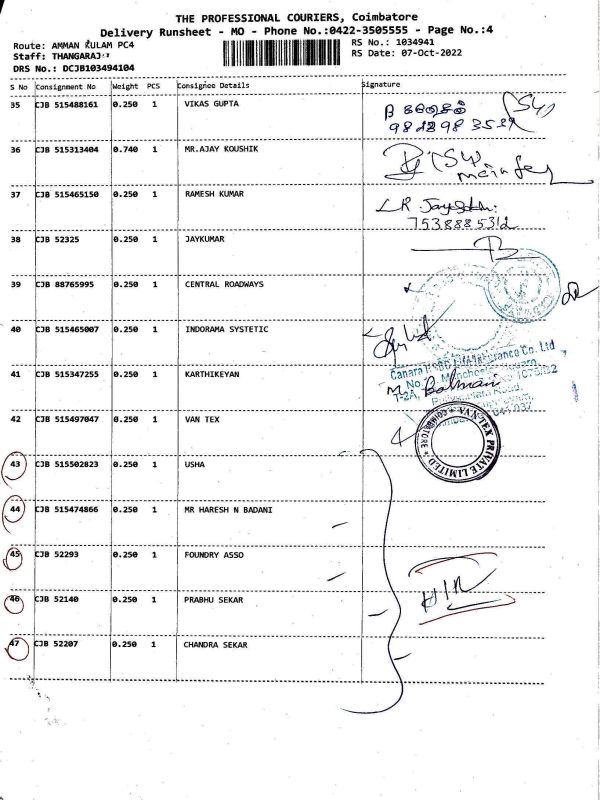 THE PROFESSIONAL COURIERS, Coimbatore
Delivery Runsheet - MO - Phone No.:0422-3505555 - Page No.:4
Route: AMMAN KULAM PC4
RS No.: 1034941
Staff: THANGARAJ
RS Date: 07-Oct-2022
DRS No.: DCJB103494104
S No Consignment No Weight PCS Consignee Details Signature
35 CJB 515488161 0.250 1 VIKAS GUPTA
36 CJB 515313404 0.740 1 MR.AJAY KOUSHIK
37 CJB 515465150 0.250 1 RAMESH KUMAR
7538885312
38 CJB 52325 0.250 1 JAYKUMAR
39 CJB 88765995 0.250 1 CENTRAL ROADWAYS
40 CJB 515465007 0.250 1 INDORAMA SYSTETIC
Canara HSBC Life Insurance Co. Ltd
41 CJB 515347255 0.250 1 KARTHIKEYAN
42 CJB 515497047 0.250 1 VAN TEX
VAN TEX PRIVATE LIMITED
COIMBATORE
43 CJB 515502823 0.250 1 USHA
44 CJB 515474866 0.250 1 MR HARESH N BADANI
45 CJB 52293 0.250 1 FOUNDRY ASSO
46 CJB 52140 0.250 1 PRABHU SEKAR
47 CJB 52207 0.250 1 CHANDRA SEKAR